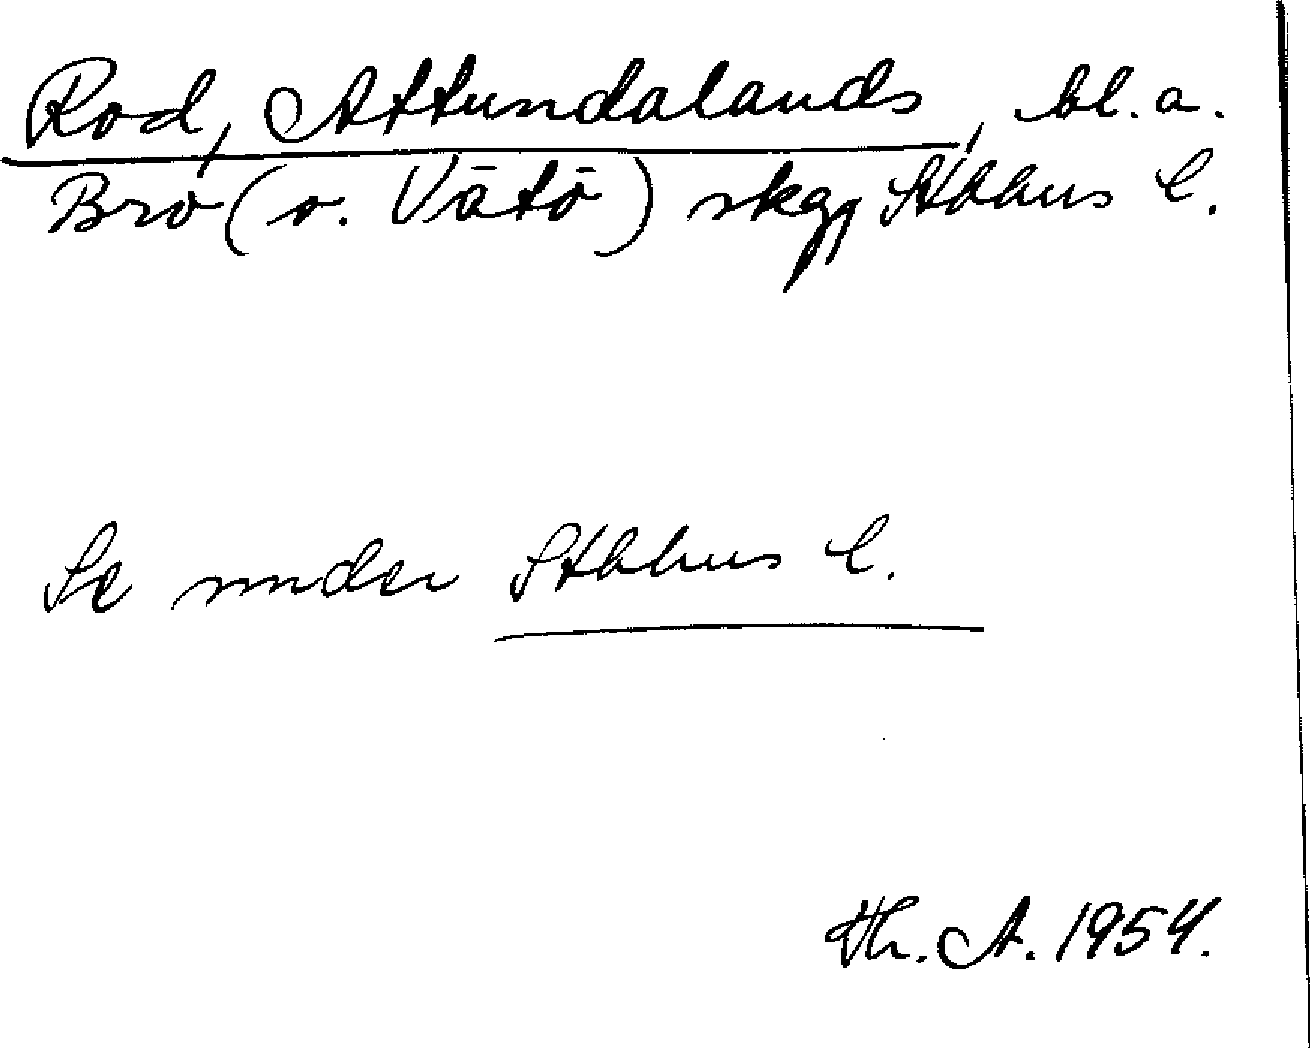 Rod, Attundalands, bl. a.
Bro (o. Vätö) skgg Sthlms l.
Se under Sthlms l.
Th. A. 1954.